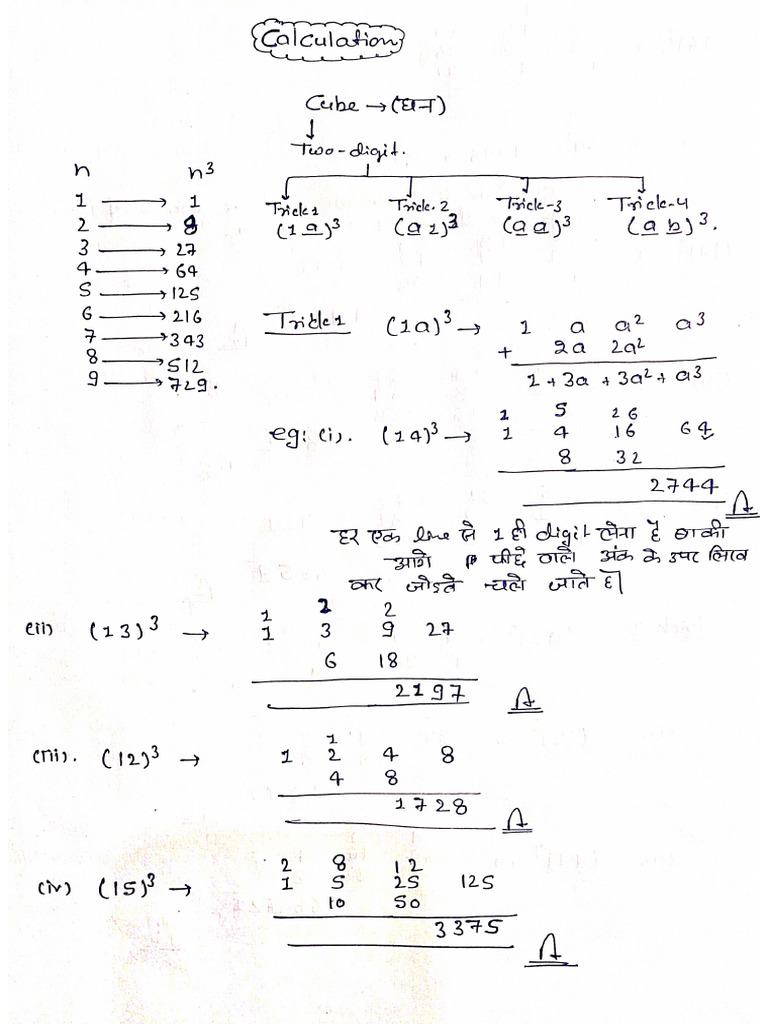 Calculation
Cube → (घन)
↓
Two-digit.
n n³
1 → 1
2 → 8
3 → 27
4 → 64
5 → 125
6 → 216
7 → 343
8 → 512
9 → 729.
Trick 1 Trick-2 Trick-3 Trick-4
(1a)³ (a1)³ (aa)³ (ab)³.
Trick 1 (1a)³ → 1 a a² a³
+ 2a 2a²
1 + 3a + 3a² + a³
1 5 26
eg: (i). (14)³ → 1 4 16 64
8 32
2744 A
हर एक line से 1 ही digit लेना है बाकी
आगे पीछे वाले अंक के उपर लिख
कर जोडते चले जाते है।
1 2 2
(ii) (13)³ → 1 3 9 27
6 18
2197 A
1
(iii). (12)³ → 1 2 4 8
4 8
1728 A
2 8 12
(iv) (15)³ → 1 5 25 125
10 50
3375 A